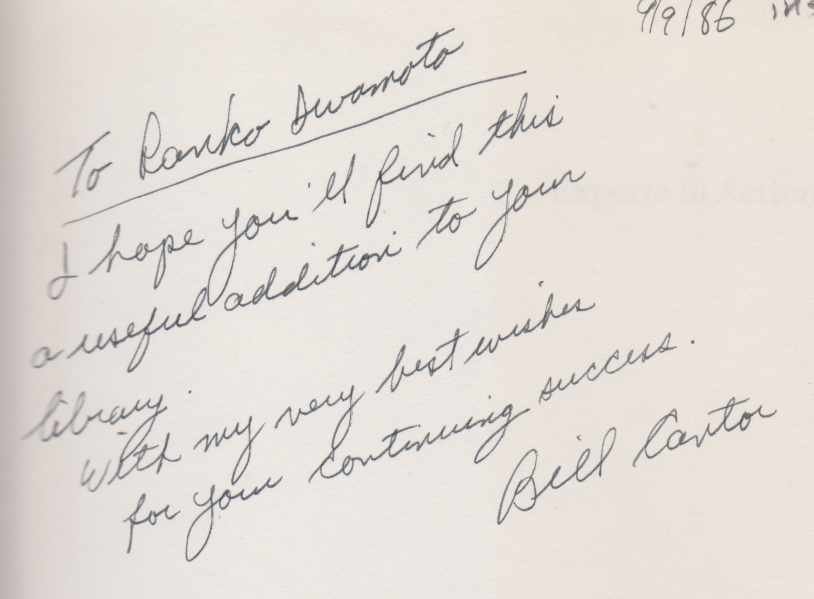 9/9/86 ins
To Ranko Iwamoto
I hope you'll find this
a useful addition to your
library.
With my very best wishes
for your continuing success.
Bill Cantor
Experts in Action